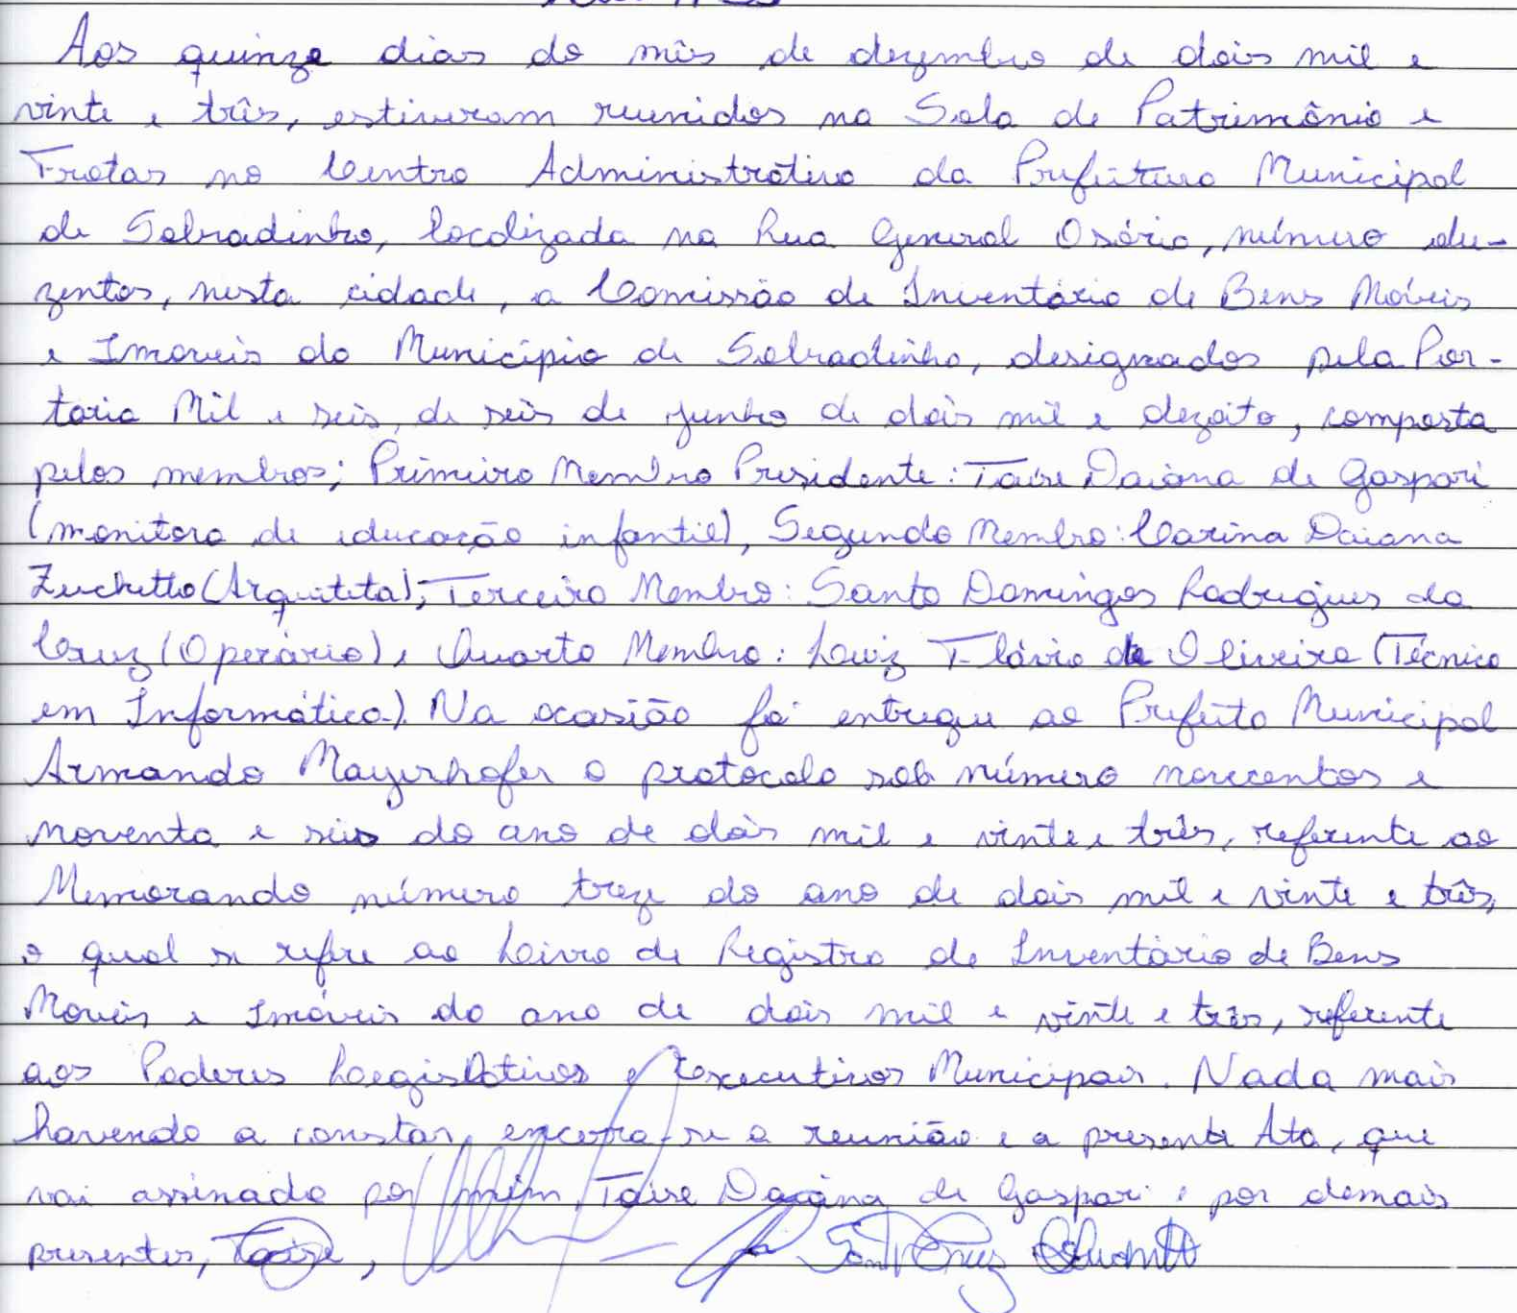 Aos quinze dias do mês de dezembro de dois mil e
vinte e três, estiveram reunidos na Sala de Patrimônio e
Frotas no Centro Administrativo da Prefeitura Municipal
de Sobradinho, localizada na Rua General Osório, número du-
zentos, nesta cidade, a Comissão de Inventário de Bens Móveis
e Imoveis do Município de Sobradinho, designados pela Por-
taria Mil e seis, de seis de junho de dois mil e dezoito, composta
pelos membros; Primeiro Membro Presidente: Taíse Daiana de Gaspari
(monitora de educação infantil), Segundo Membro: Carina Daiana
Zuchetto (Arquiteta); Terceiro Membro: Santo Domingos Rodrigues da
Cruz (Operário), Quarto Membro: Luiz Flávio de Oliveira (Técnico
em Informática). Na ocasião foi entregue ao Prefeito Municipal
Armando Mayerhofer o protocolo sob número novecentos e
noventa e seis do ano de dois mil e vinte e três, referente ao
Memorando número treze do ano de dois mil e vinte e três,
o qual se refere ao Livro de Registro de Inventário de Bens
Moveis e Imóveis do ano de dois mil e vinte e três, referente
aos Poderes Legislativos e Executivos Municipais. Nada mais
havendo a constar, encerra-se a reunião e a presente Ata, que
vai assinado por mim, Taíse Daiana de Gaspari e por demais
presentes, Taíse,